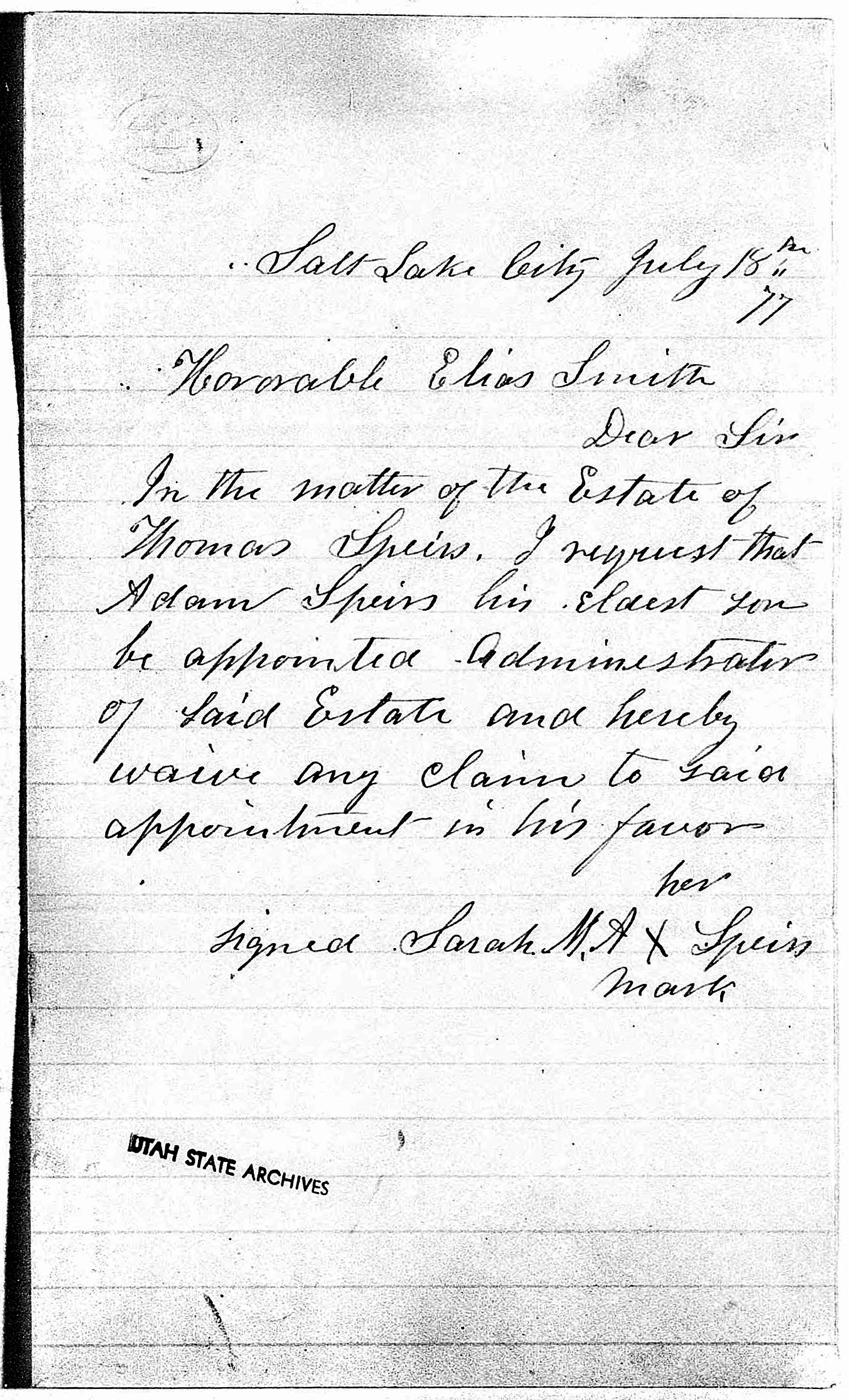 Salt Lake City July 18th
77
Honorable Elias Smith
Dear Sir
In the matter of the Estate of
Thomas Speirs. I request that
Adam Speirs his eldest son
be appointed Administrator
of said Estate and hereby
waive any claim to said
appointment in his favor
her
signed Sarah M. A X Speirs
mark
UTAH STATE ARCHIVES